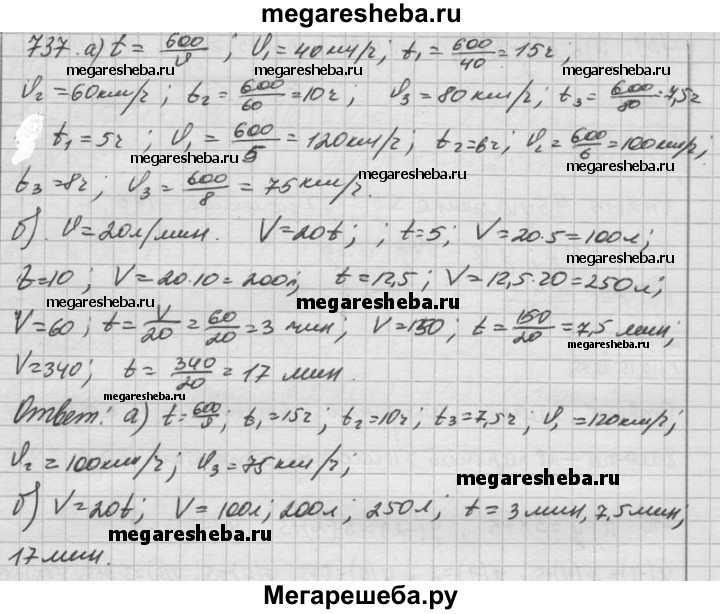 megaresheba.ru
737. а) t = 600/v ; v₁ = 40 км/ч ; t₁ = 600/40 = 15 ч ;
megaresheba.ru megaresheba.ru
v₂ = 60 км/ч ; t₂ = 600/60 = 10 ч ; v₃ = 80 км/ч ; t₃ = 600/80 = 7,5 ч
megaresheba.ru megaresheba.ru
t₁ = 5 ч ; v₁ = 600/5 = 120 км/ч ; t₂ = 6 ч ; v₂ = 600/6 = 100 км/ч ;
megaresheba.ru megaresheba.ru
t₃ = 8 ч ; v₃ = 600/8 = 75 км/ч.
megaresheba.ru
б). v = 20 л/мин. V = 20t ; ; t = 5 ; V = 20·5 = 100 л ;
t = 10 ; V = 20·10 = 200 л ; t = 12,5 ; V = 12,5·20 = 250 л ;
megaresheba.ru
V = 60 ; t = V/20 = 60/20 = 3 мин ; V = 150 ; t = 150/20 = 7,5 мин ;
megaresheba.ru
V = 340 ; t = 340/20 = 17 мин.
megaresheba.ru
Ответ: а) t = 600/v ; t₁ = 15 ч ; t₂ = 10 ч ; t₃ = 7,5 ч ; v₁ = 120 км/ч ;
megaresheba.ru
v₂ = 100 км/ч ; v₃ = 75 км/ч ;
megaresheba.ru
б) V = 20t ; V = 100 л ; 200 л ; 250 л ; t = 3 мин, 7,5 мин ;
megaresheba.ru
17 мин.
Мегарешеба.ру